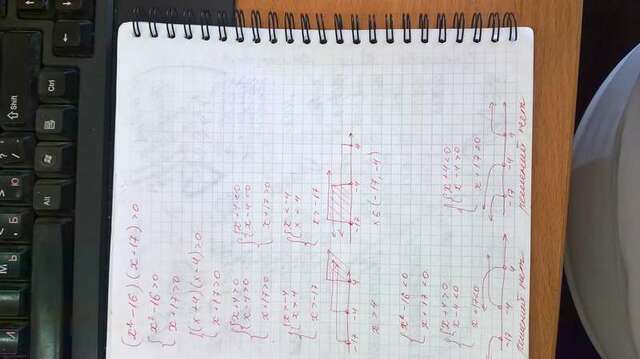 Shift
Alt
Ctrl
(x² - 16)(x + 17) > 0
{ x² - 16 > 0
x + 17 > 0
{ (x + 4)(x - 4) > 0
x + 17 > 0
{ { x + 4 > 0 { { x + 4 < 0
x - 4 > 0 x - 4 < 0
x + 17 > 0 x + 17 > 0
{ { x > -4 { { x < -4
x > 4 x < 4
x > -17 x > -17
-17 -4 4 -17 -4 4
x > 4 x ∈ (-17, -4)
{ x² - 16 < 0
x + 17 < 0
{ { x + 4 > 0 { { x + 4 < 0
x - 4 < 0 x - 4 > 0
x + 17 < 0
-17 -4 4 -17 -4 4
решений нет решений нет